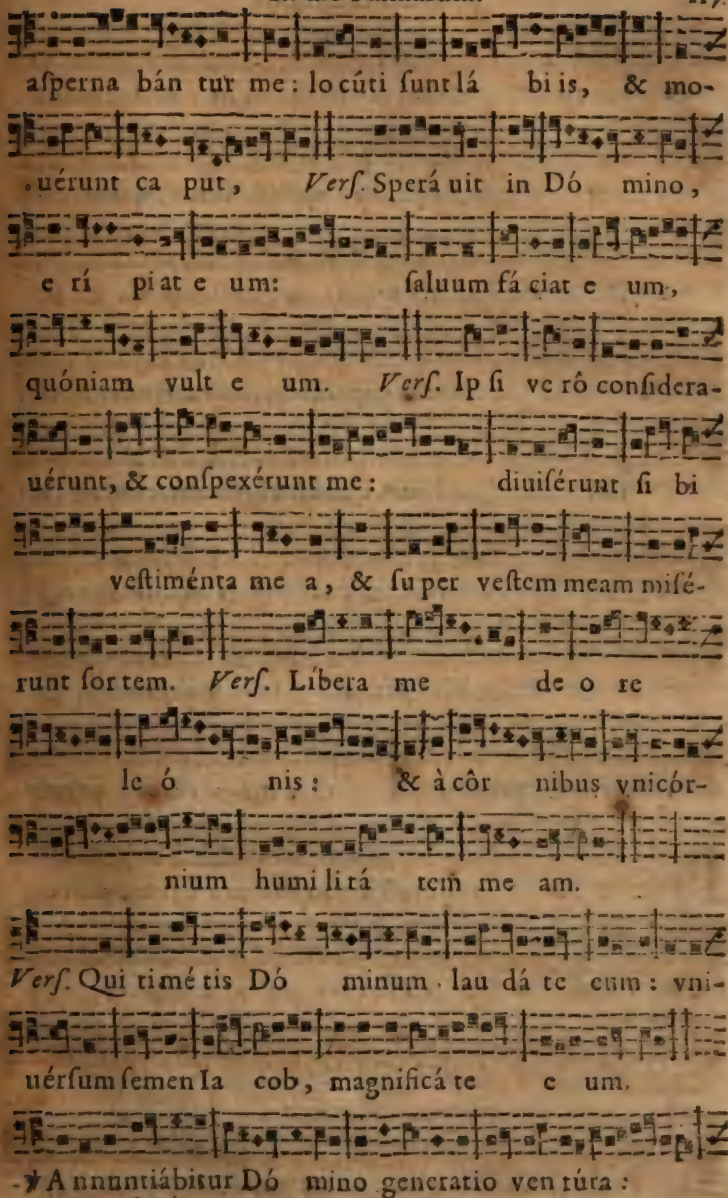 aſperna bán tur me: lo cúti ſunt lá bi is, & mo-
uérunt ca put, Verſ. Sperá uit in Dó mino,
e rí pi at e um: ſaluum fá ciat e um,
quóniam vult e um. Verſ. Ip ſi ve rô conſidera-
uérunt, & conſpexérunt me: diuiſérunt ſi bi
veſtiménta me a, & ſu per veſtem meam miſé-
runt ſor tem. Verſ. Líbera me de o re
le ó nis: & à côr nibus vnicór-
nium humi li tá tem me am.
Verſ. Qui timé tis Dó minum lau dá te eum: vni-
uérſum ſemen Ia cob, magnificá te e um.
A nnuntiábitur Dó mino generatio ven túra: